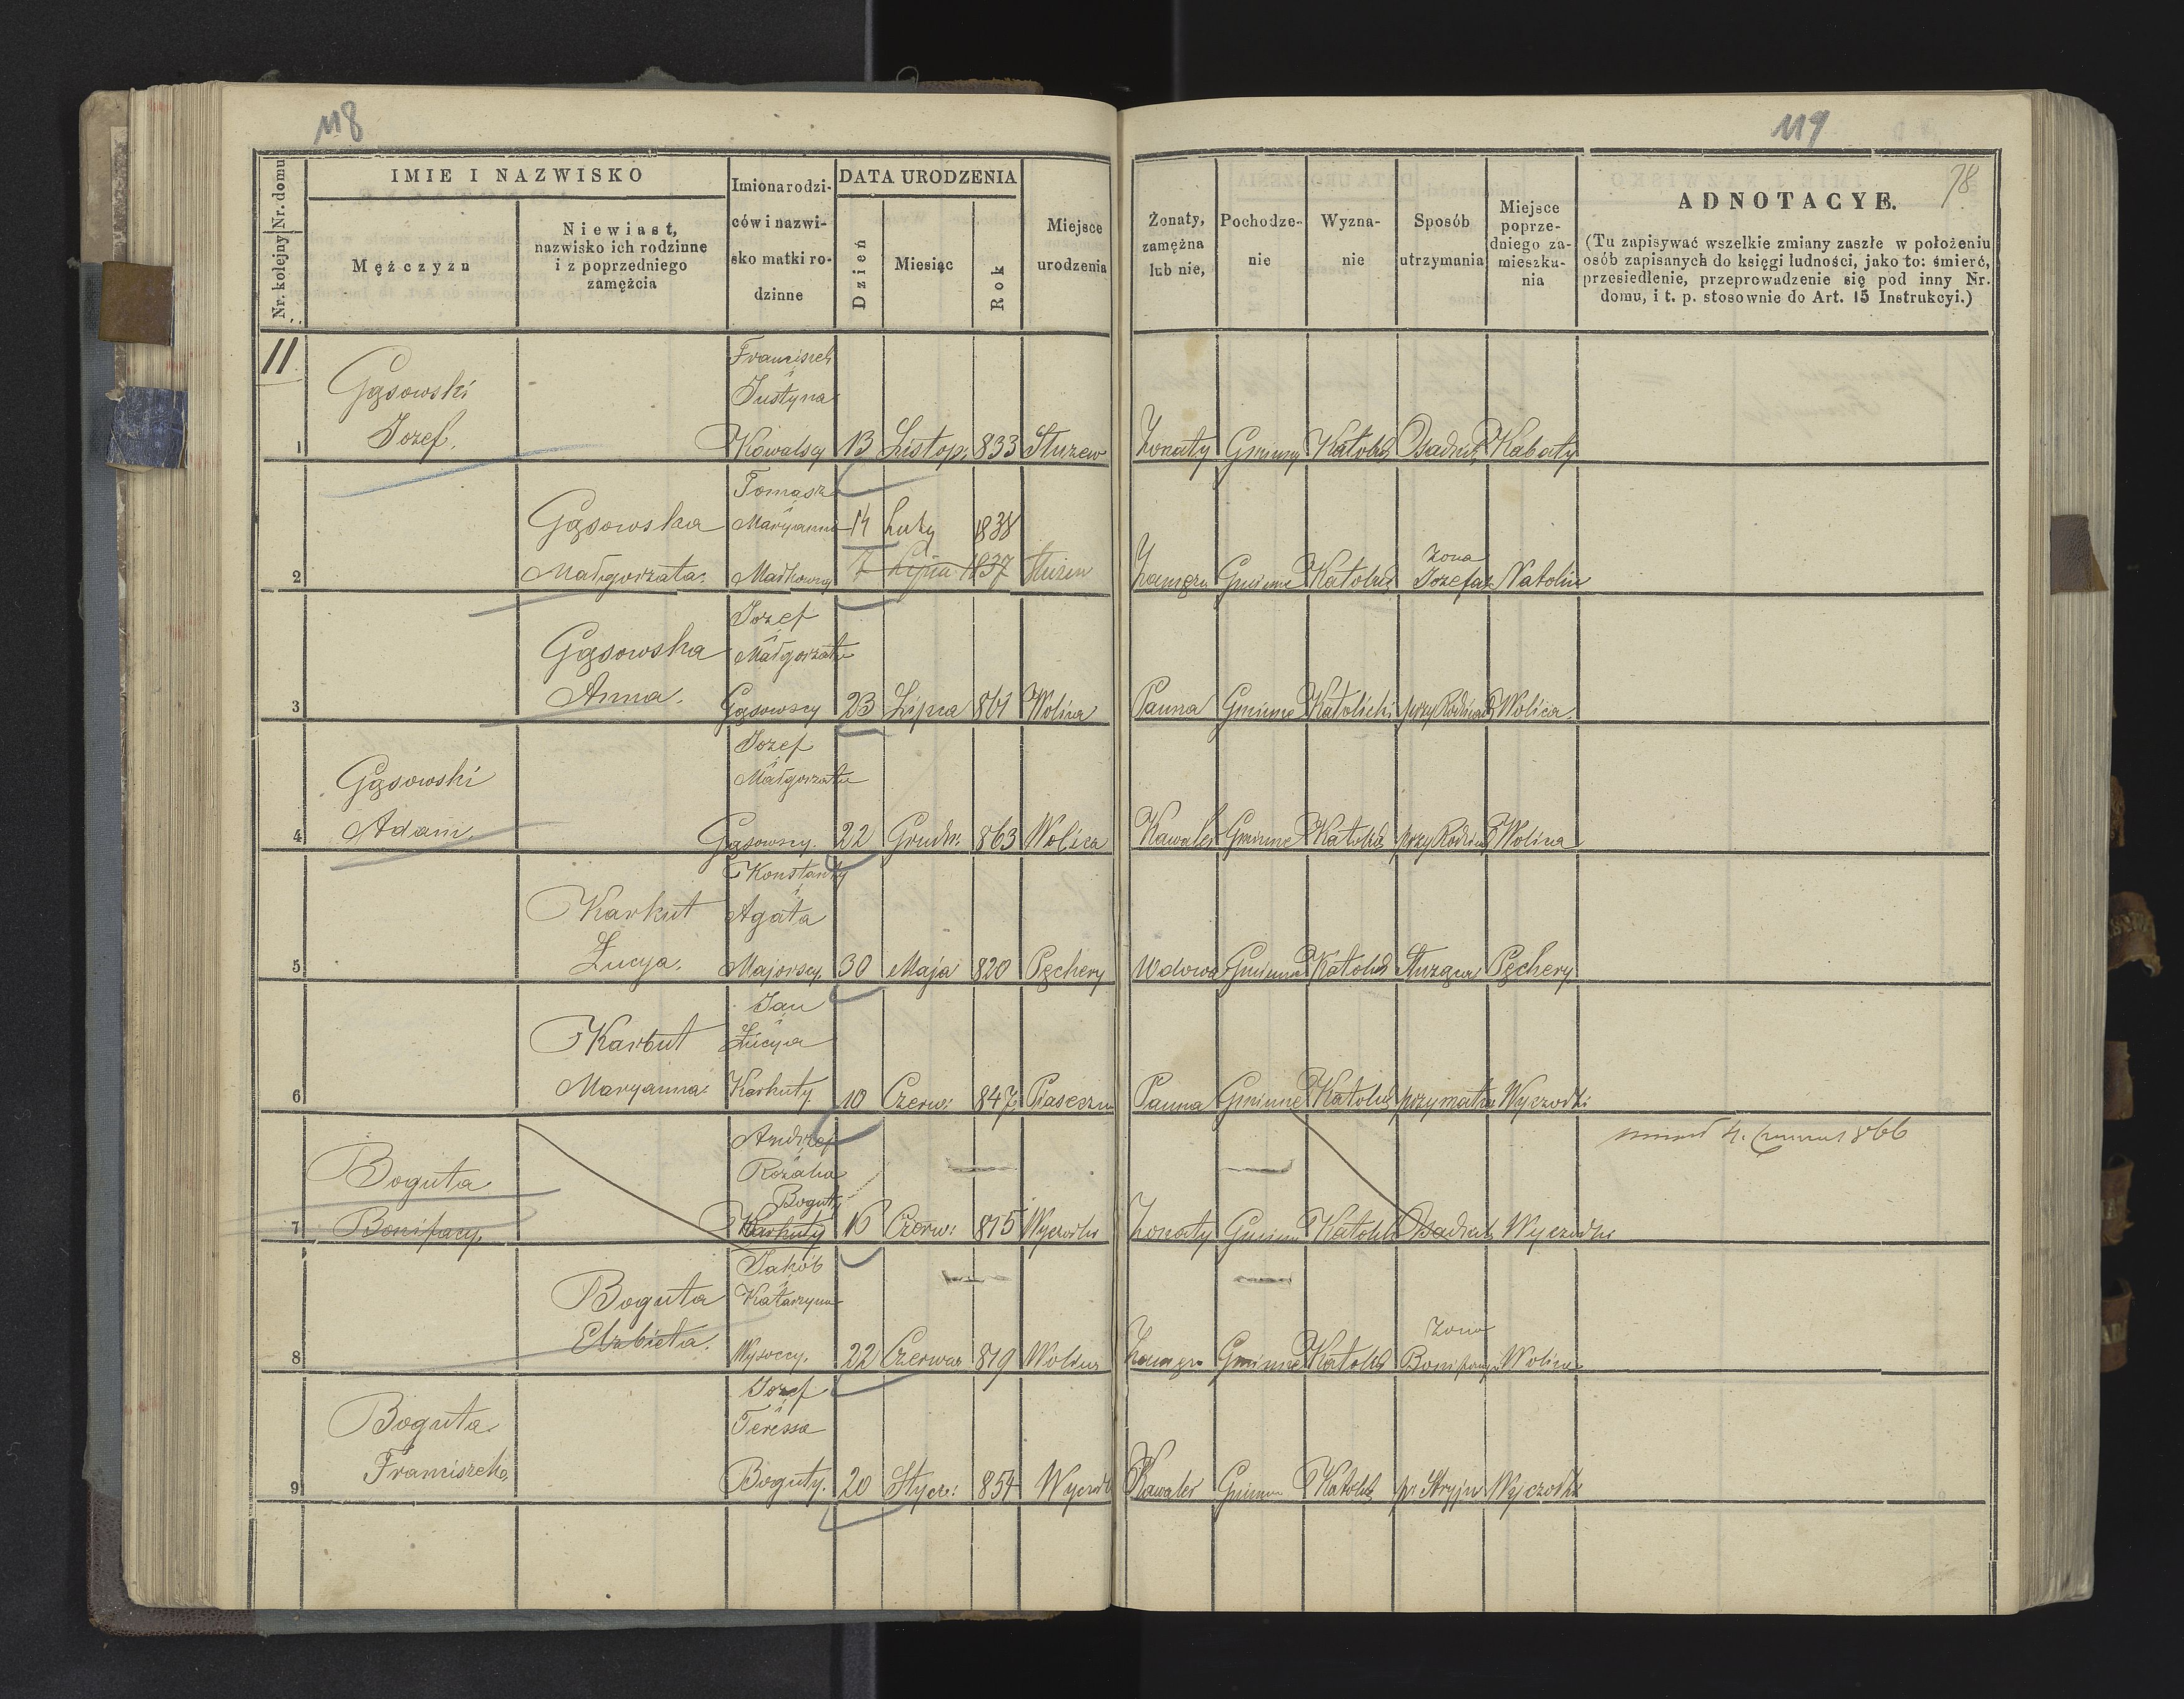 118
Nr. kolejny Nr. domu
IMIE I NAZWISKO
Mężczyzn
Niewiast,
nazwisko ich rodzinne
i z poprzedniego
zamęźcia
Imiona rodzi-
ców i nazwi-
sko matki ro-
dzinne
DATA URODZENIA
Dzień
Miesiąc
Rok
Miejsce
urodzenia
11
Gąsowski
Jozef.
Franciszek
i
Justyna
1
Kowalscy 13 Listop: 833
Gąsowska
Małgorzata.
Tomasz
i
Maryanna 14 Luty 1838
2
7 Lipca 1837
Gąsowska
Anna.
Jozef
i
Małgorzata
3
Gąsowscy 23 Lipca 861 Wolica
Gąsowski
Adam
Jozef
i
Małgorzata
4
Gąsowscy. 22 Grudn: 863 Wolica
Karkut
Łucya.
Konstanty
i
Agata
5
Majorscy. 30 Maja 820 Pęchery
Karkut
Maryanna.
Jan
i
Łucya
6
Karkuty. 10 Czerw: 847
Boguta
Bonifacy.
Andrzej
i
Rozalia
Boguty
7
Karkuty 16 Czerw: 815
Boguta
Elzbieta.
Jakób
i
Katarzyna
8
Wysoccy. 22 Czerwca 819
Boguta
Franciszek
Jozef
i
Teressa
9
Boguty. 20 Stycz: 854
119
78
Żonaty,
zamężna
lub nie,
Pochodze-
nie
Wyzna-
nie
Sposób
utrzymania
Miejsce
poprze-
dniego za-
mieszka-
nia
ADNOTACYE.
(Tu zapisywać wszelkie zmiany zaszłe w położeniu
osób zapisanych do księgi ludności, jako to: śmierć,
przesiedlenie, przeprowadzenie się pod inny Nr.
domu, i t. p. stosownie do Art. 15 Instrukcyi.)
Żonaty Gminny Katolik Osadnik Kabaty
Żona
Zamęzn Gminne Jozefa Natolin
Panna Gminne Katolicki przy Wolica
Kawaler Gminne przy Wolica
Wdowa Gminne Pęchery
Panna Gminne przy matce Wyczołki
866
Żonaty Katolik Osadnik Wyczołki
Żona
Gminne
Kawaler Katolik Wyczołki